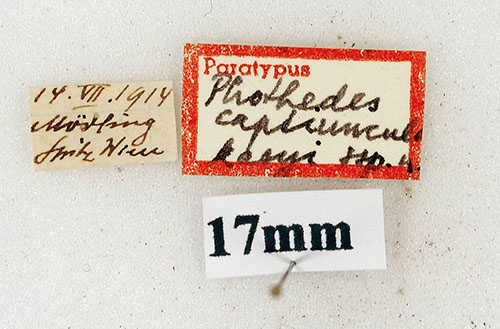 14.VII.1914
Mödling
Wien
Paratypus
Photedes
captiuncul
ssp. n
17mm